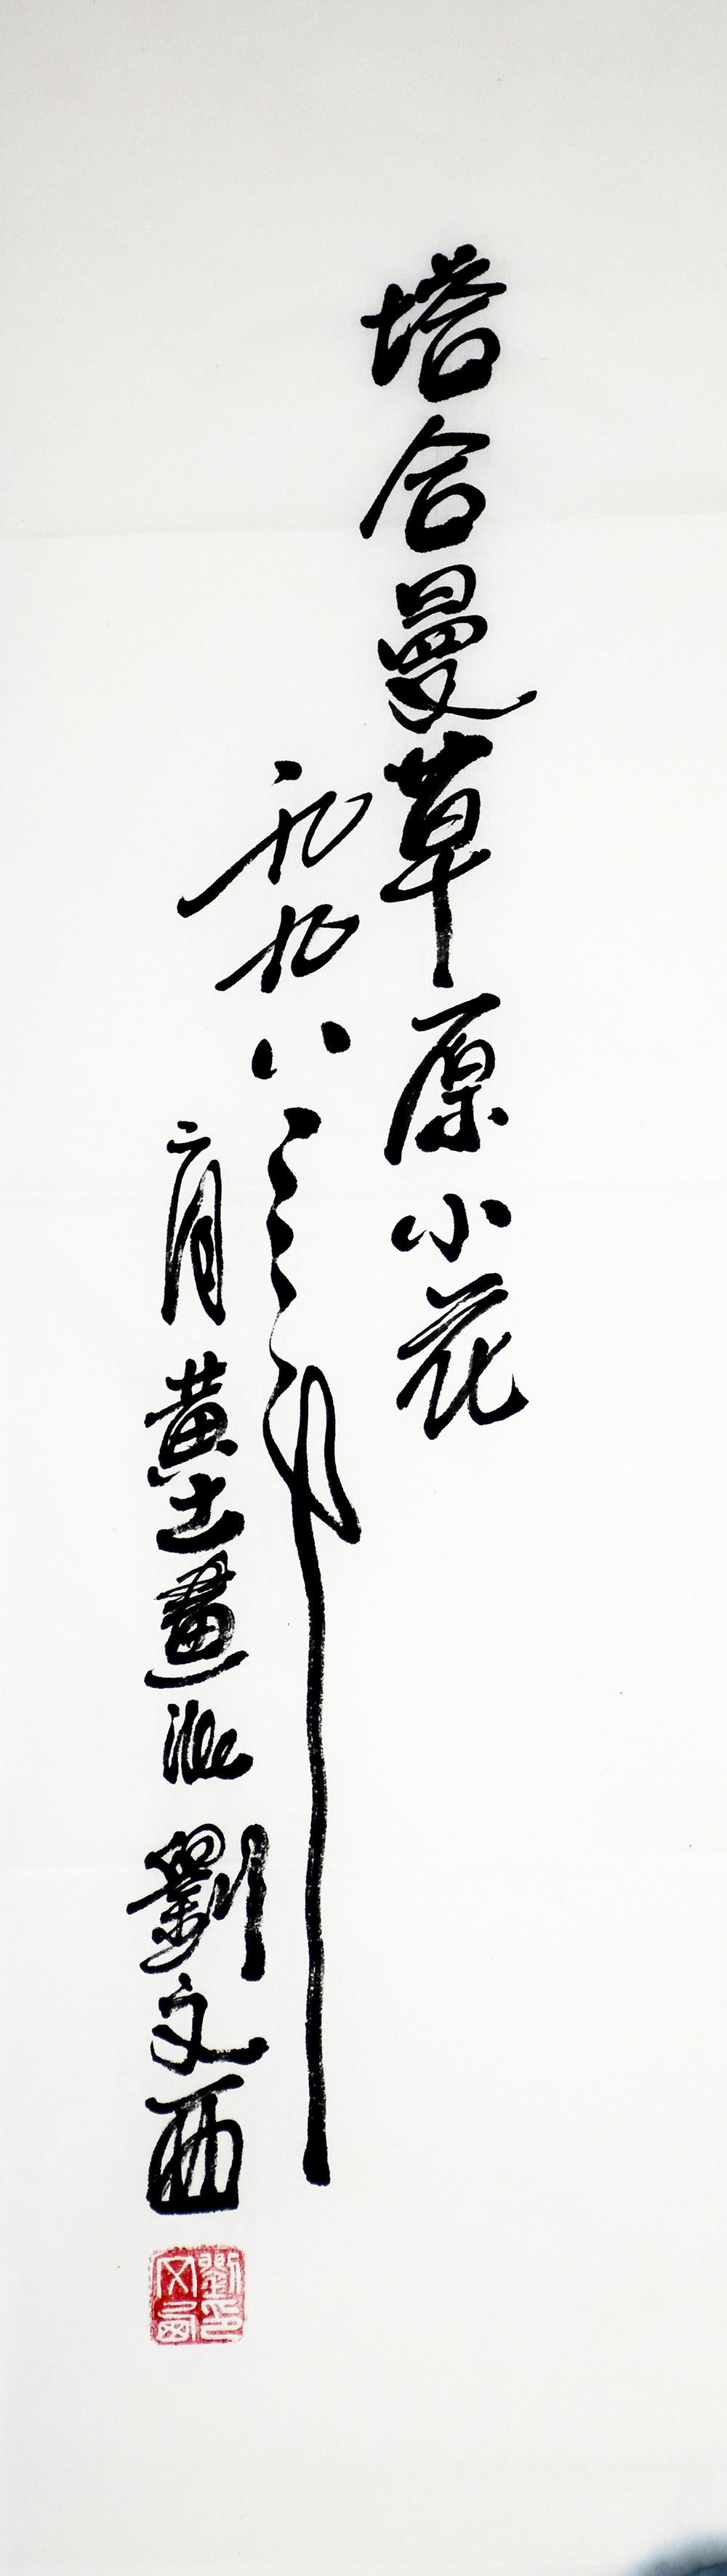 塔合曼草原小花
一九九八年
二月黄土畫派劉文西
劉印文西